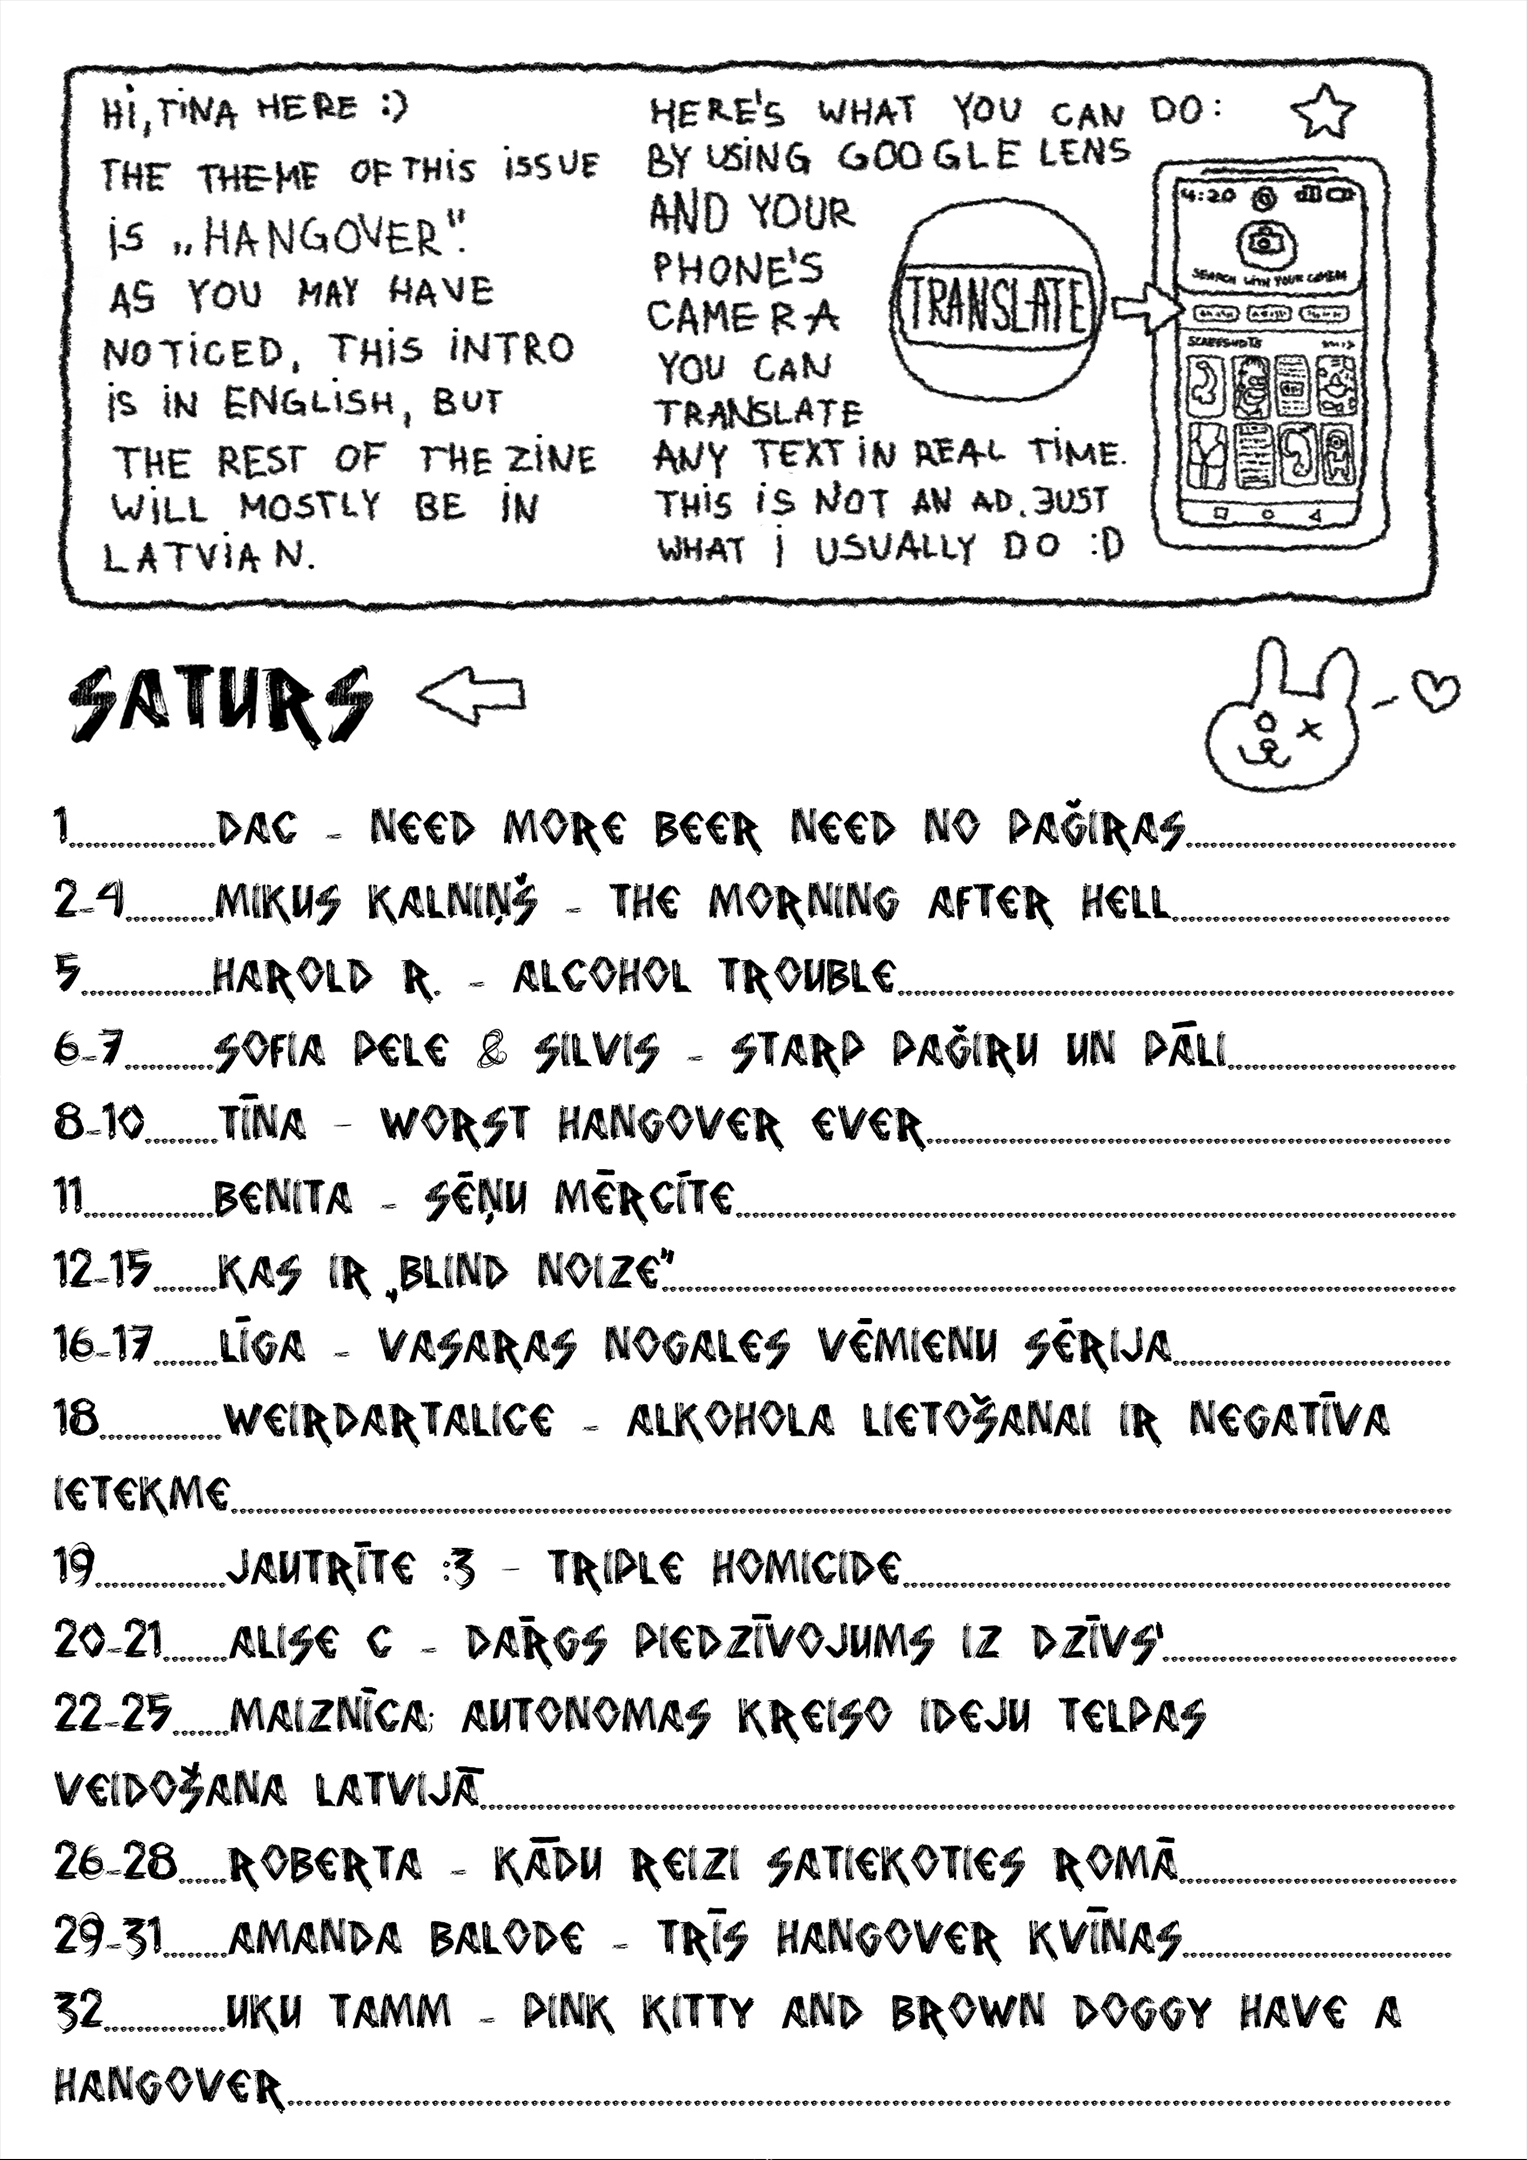 Hi, TiNA HERE :)
THE THEME OF THiS iSSUE
iS „HANGOVER".
AS YOU MAY HAVE
NOTiCED, THiS iNTRO
iS iN ENGLiSH, BUT
THE REST OF THE ZiNE
WiLL MOSTLY BE iN
LATViAN.
HERE'S WHAT YOU CAN DO:
BY USiNG GOOGLE LENS
AND YOUR
PHONE'S
CAMERA
YOU CAN
TRANSLATE
ANY TEXT iN REAL TiME.
THiS iS NOT AN AD. JUST
WHAT i USUALLY DO :D
TRANSLATE
4:20
SEARCH WITH YOUR CAMERA
SATURS
1..............DAC - NEED MORE BEER NEED NO PAĢIRAS
2-4..........MIKUS KALNIŅŠ - THE MORNING AFTER HELL
5..............HAROLD R. - ALCOHOL TROUBLE
6-7..........SOFIA PELE & SILVIS - STARP PAĢIRU UN PĀLI
8-10........TĪNA - WORST HANGOVER EVER
11..............BENITA - SĒŅU MĒRCĪTE
12-15.......KAS IR „BLIND NOIZE"
16-17.......LĪGA - VASARAS NOGALES VĒMIENU SĒRIJA
18..............WEIRDARTALICE - ALKOHOLA LIETOŠANAI IR NEGATĪVA
IETEKME
19..............JAUTRĪTE :3 - TRIPLE HOMICIDE
20-21.......ALISE C - DĀRGS PIEDZĪVOJUMS IZ DZĪVS'
22-25......MAIZNĪCA: AUTONOMAS KREISO IDEJU TELPAS
VEIDOŠANA LATVIJĀ
26-28.....ROBERTA - KĀDU REIZI SATIEKOTIES ROMĀ
29-31.......AMANDA BALODE - TRĪS HANGOVER KVĪNAS
32............UKU TAMM - PINK KITTY AND BROWN DOGGY HAVE A
HANGOVER